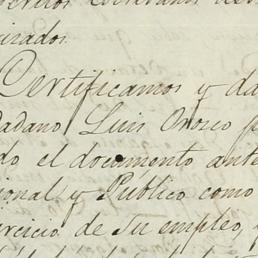 izados.
Certificamos y da
dadano, Luis Orozco
do el documento ante
ional y Público como
ercicio de su empleo,